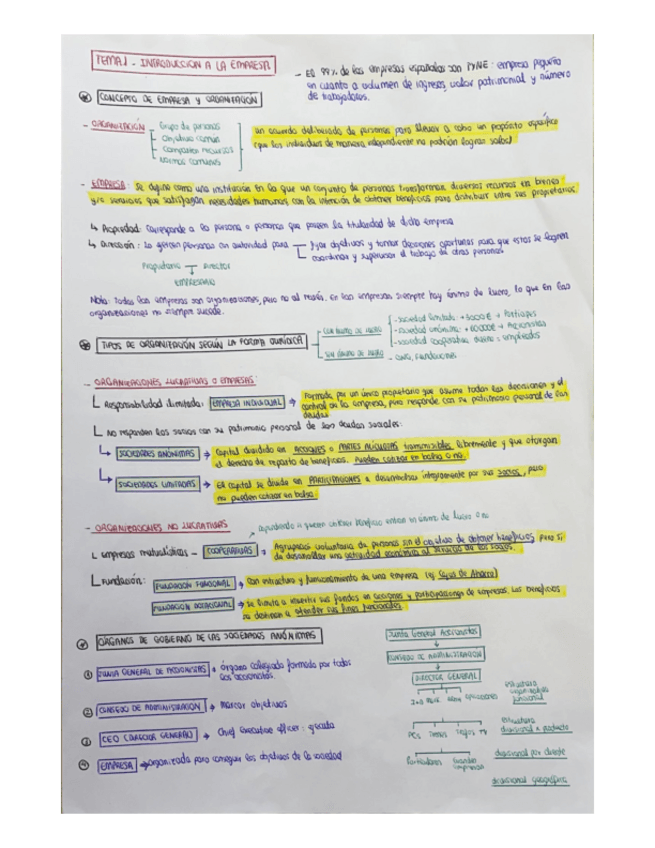 TEMA 1 - INTRODUCCION A LA EMPRESA
- El 99% de las empresas españolas son PYME: empresa pequeña
en cuanto a volumen de ingresos, valor patrimonial y número
de trabajadores.
CONCEPTO DE EMPRESA Y ORGANIZACIÓN
- ORGANIZACIÓN
- Grupo de personas
- Objetivo común
- Comparten recursos
- Normas comunes
un acuerdo deliberado de personas para llevar a cabo un propósito específico
(que los individuos de manera independiente no podrían lograr solos)
- EMPRESA: Se define como una institución en la que un conjunto de personas transforman diversos recursos en bienes
y/o servicios que satisfagan necesidades humanas con la intención de obtener beneficios para distribuir entre sus propietarios.
↳ Propiedad: Corresponde a la persona o personas que poseen la titularidad de dicha empresa
↳ Dirección: La ejercen personas con autoridad para
fijar objetivos y tomar decisiones oportunas para que estos se logren
coordinar y supervisar el trabajo de otras personas
Propietario Director
EMPRESARIO
Nota: Todas las empresas son organizaciones, pero no al revés. En las empresas siempre hay ánimo de lucro, lo que en las
organizaciones no siempre sucede.
TIPOS DE ORGANIZACIÓN SEGÚN LA FORMA JURÍDICA
CON ÁNIMO DE LUCRO
- sociedad limitada: +3000 € → Partícipes
- sociedad anónima: +60000€ → Accionistas
- sociedad cooperativa: dueños = empleados
SIN ÁNIMO DE LUCRO - ONG, Fundaciones
- ORGANIZACIONES LUCRATIVAS O EMPRESAS:
Responsabilidad ilimitada: EMPRESA INDIVIDUAL →
Formada por un único propietario que asume todas las decisiones y el
control de la empresa, pero responde con su patrimonio personal de las
deudas
No responden los socios con su patrimonio personal de las deudas sociales:
↳ SOCIEDADES ANÓNIMAS → Capital dividido en ACCIONES o PARTES ALÍCUOTAS transmisibles libremente y que otorgan
el derecho de reparto de beneficios. Pueden cotizar en bolsa o no.
↳ SOCIEDADES LIMITADAS → El capital se divide en PARTICIPACIONES a desembolsar íntegramente por sus socios, pero
no pueden cotizar en bolsa.
- ORGANIZACIONES NO LUCRATIVAS
dependiendo si quieren obtener beneficio entran en ánimo de lucro o no
empresas mutualísticas - COOPERATIVAS →
Agrupación voluntaria de personas sin el objetivo de obtener beneficios pero sí
de desarrollar una actividad económica al servicio de los socios.
Fundación: FUNDACIÓN FUNCIONAL → Con estructura y funcionamiento de una empresa (ej Cajas de Ahorro)
FUNDACIÓN DOTACIONAL → Se limita a invertir sus fondos en acciones y participaciones de empresas. Los beneficios
se destinan a atender sus fines funcionales.
ÓRGANOS DE GOBIERNO DE LAS SOCIEDADES ANÓNIMAS
① JUNTA GENERAL DE ACCIONISTAS → Órgano colegiado formado por todos
los accionistas
② CONSEJO DE ADMINISTRACIÓN → Marcar objetivos
CEO → Chief Executive officer: ejecuta
④ EMPRESA → organizada para conseguir los objetivos de la sociedad
Junta General Accionistas
CONSEJO DE ADMINISTRACIÓN
DIRECTOR GENERAL
operaciones
estructura
organizativa
funcional
PCs TV
estructura
divisional x producto
Particulares Grandes
empresas
divisional por cliente
divisional geográfica